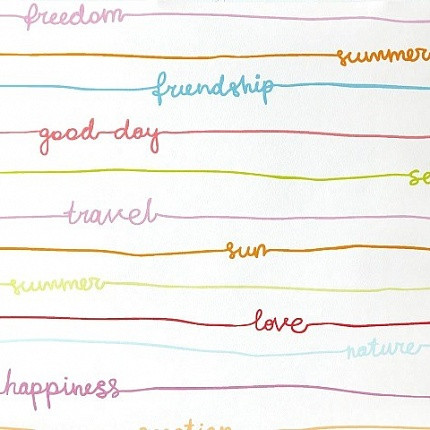 freedom
summer
friendship
good day
se
travel
sun
summer
love
nature
happiness